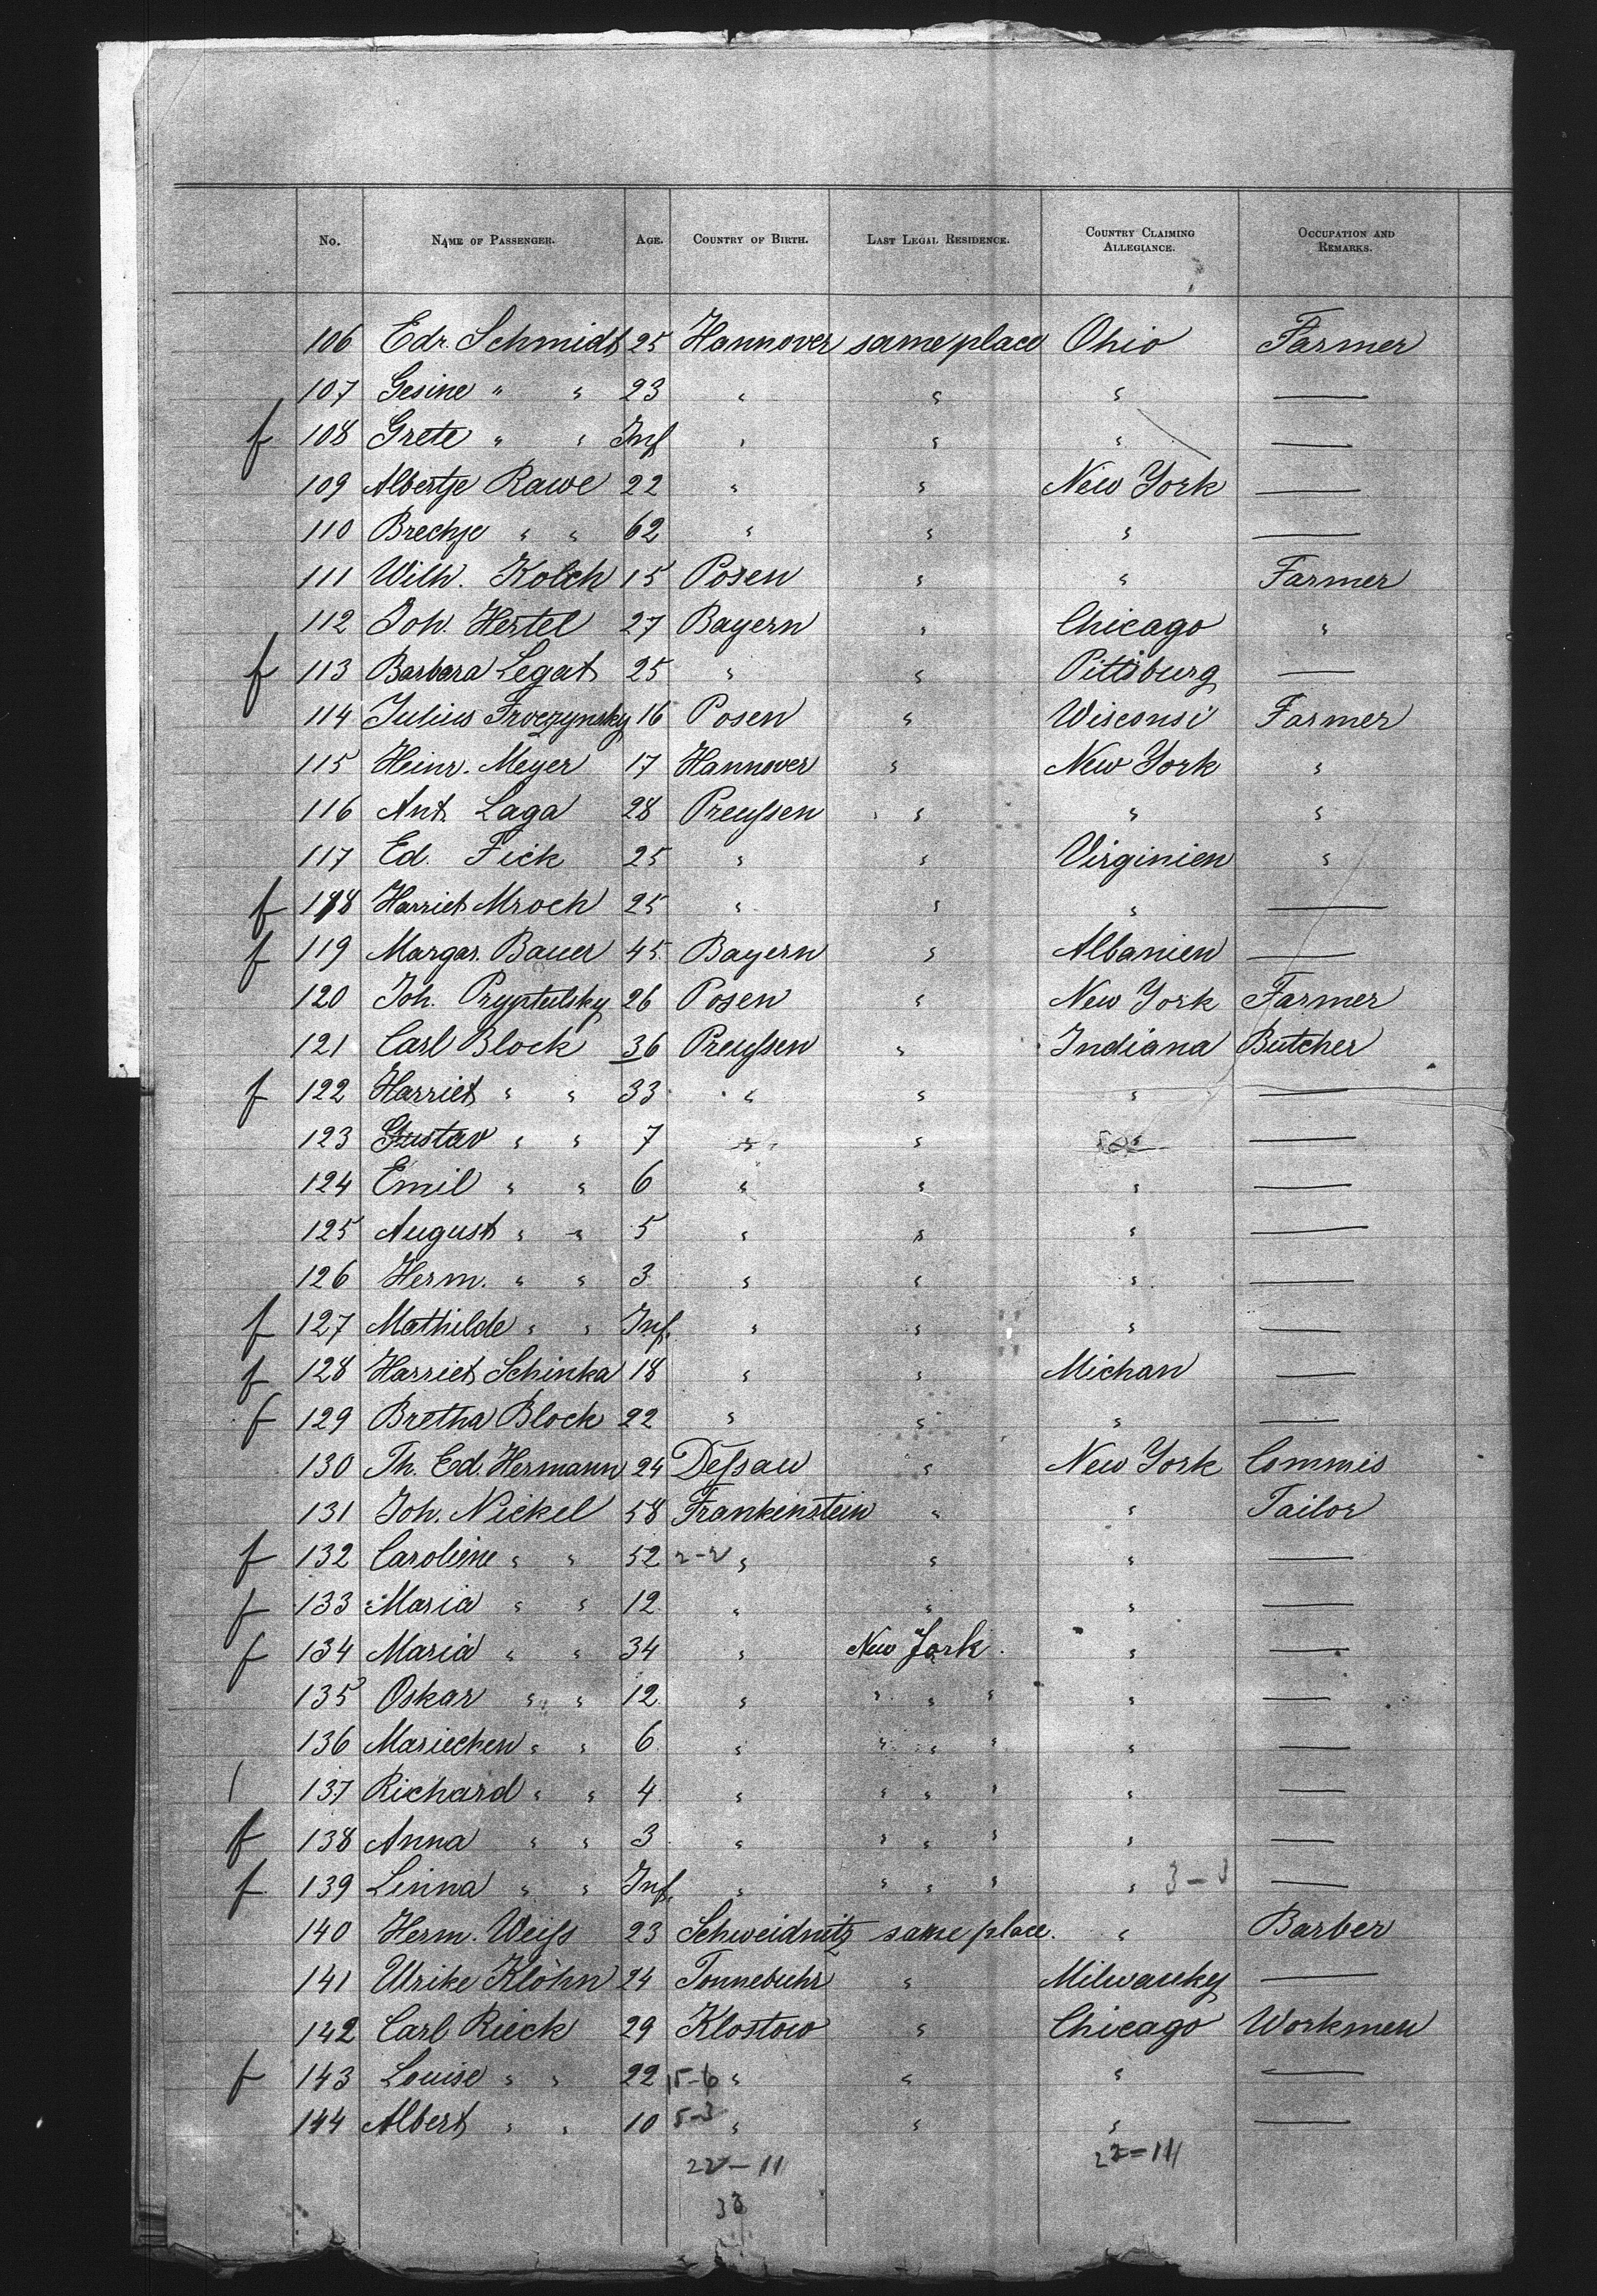 No. NAME OF PASSENGER. AGE. COUNTRY OF BIRTH. LAST LEGAL RESIDENCE. COUNTRY CLAIMING ALLEGIANCE. OCCUPATION AND REMARKS.
106 Edr. Schmidt 25 Hannover same place Ohio Farmer
107 Gesine " " 23 " " " —
f 108 Grete " " Inf " " " —
109 Albertje Rawe 22 " " New York —
110 Brechje " " 62 " " " —
111 Wilh. Kolch 15 Posen " " Farmer
112 Joh. Hertel 27 Bayern " Chicago "
f 113 Barbara Legat 25 " " Pittsburg —
114 Julius 16 Posen " Wisconsi Farmer
115 Heinr. Meyer 17 Hannover " New York "
116 Ant. Laga 28 Preußen " " "
117 Ed. Fick 25 " " Virginien "
f 118 Harriet Mroch 25 " " " —
f 119 Margar. Bauer 45 Bayern " Albanien —
120 Joh. Pryptulsky 26 Posen " New York Farmer
121 Carl Block 36 Preußen " Indiana Butcher
f 122 Harriet " " 33 " " " —
123 Gustav " " 7 " " " —
124 Emil " " 6 " " " —
125 August " " 5 " " " —
126 Herm. " " 3 " " " —
f 127 Mathilde " " Inf. " " " —
f 128 Harriet Schinka 18 " " Michan —
f 129 Bretha Block 22 " " " —
130 Th. Ed. Hermann 24 Deßau " New York Commis
131 Joh. Nickel 58 Frankenstein " " Tailor
f 132 Caroliene " " 52 2-2 " " " —
f 133 Maria " " 12 " " " —
f 134 Maria " " 34 " New York. " —
135 Oskar " " 12 " " " " " —
136 Mariechen " " 6 " " " " " —
137 Richard " " 4 " " " " " —
f 138 Anna " " 3 " " " " " —
f 139 Linna " " Inf. " " " " " 3-3 —
140 Herm. Weiß 23 Schweidnitz same place. " Barber
141 Ulrike Klöhn 24 Tonnebuhr " Milwauky —
142 Carl Rieck 29 Klostow " Chicago Workmen
f 143 Louise " " 22 15-6 " " " —
144 Albert " " 10 5-3 " " " —
22-11 22=11
33